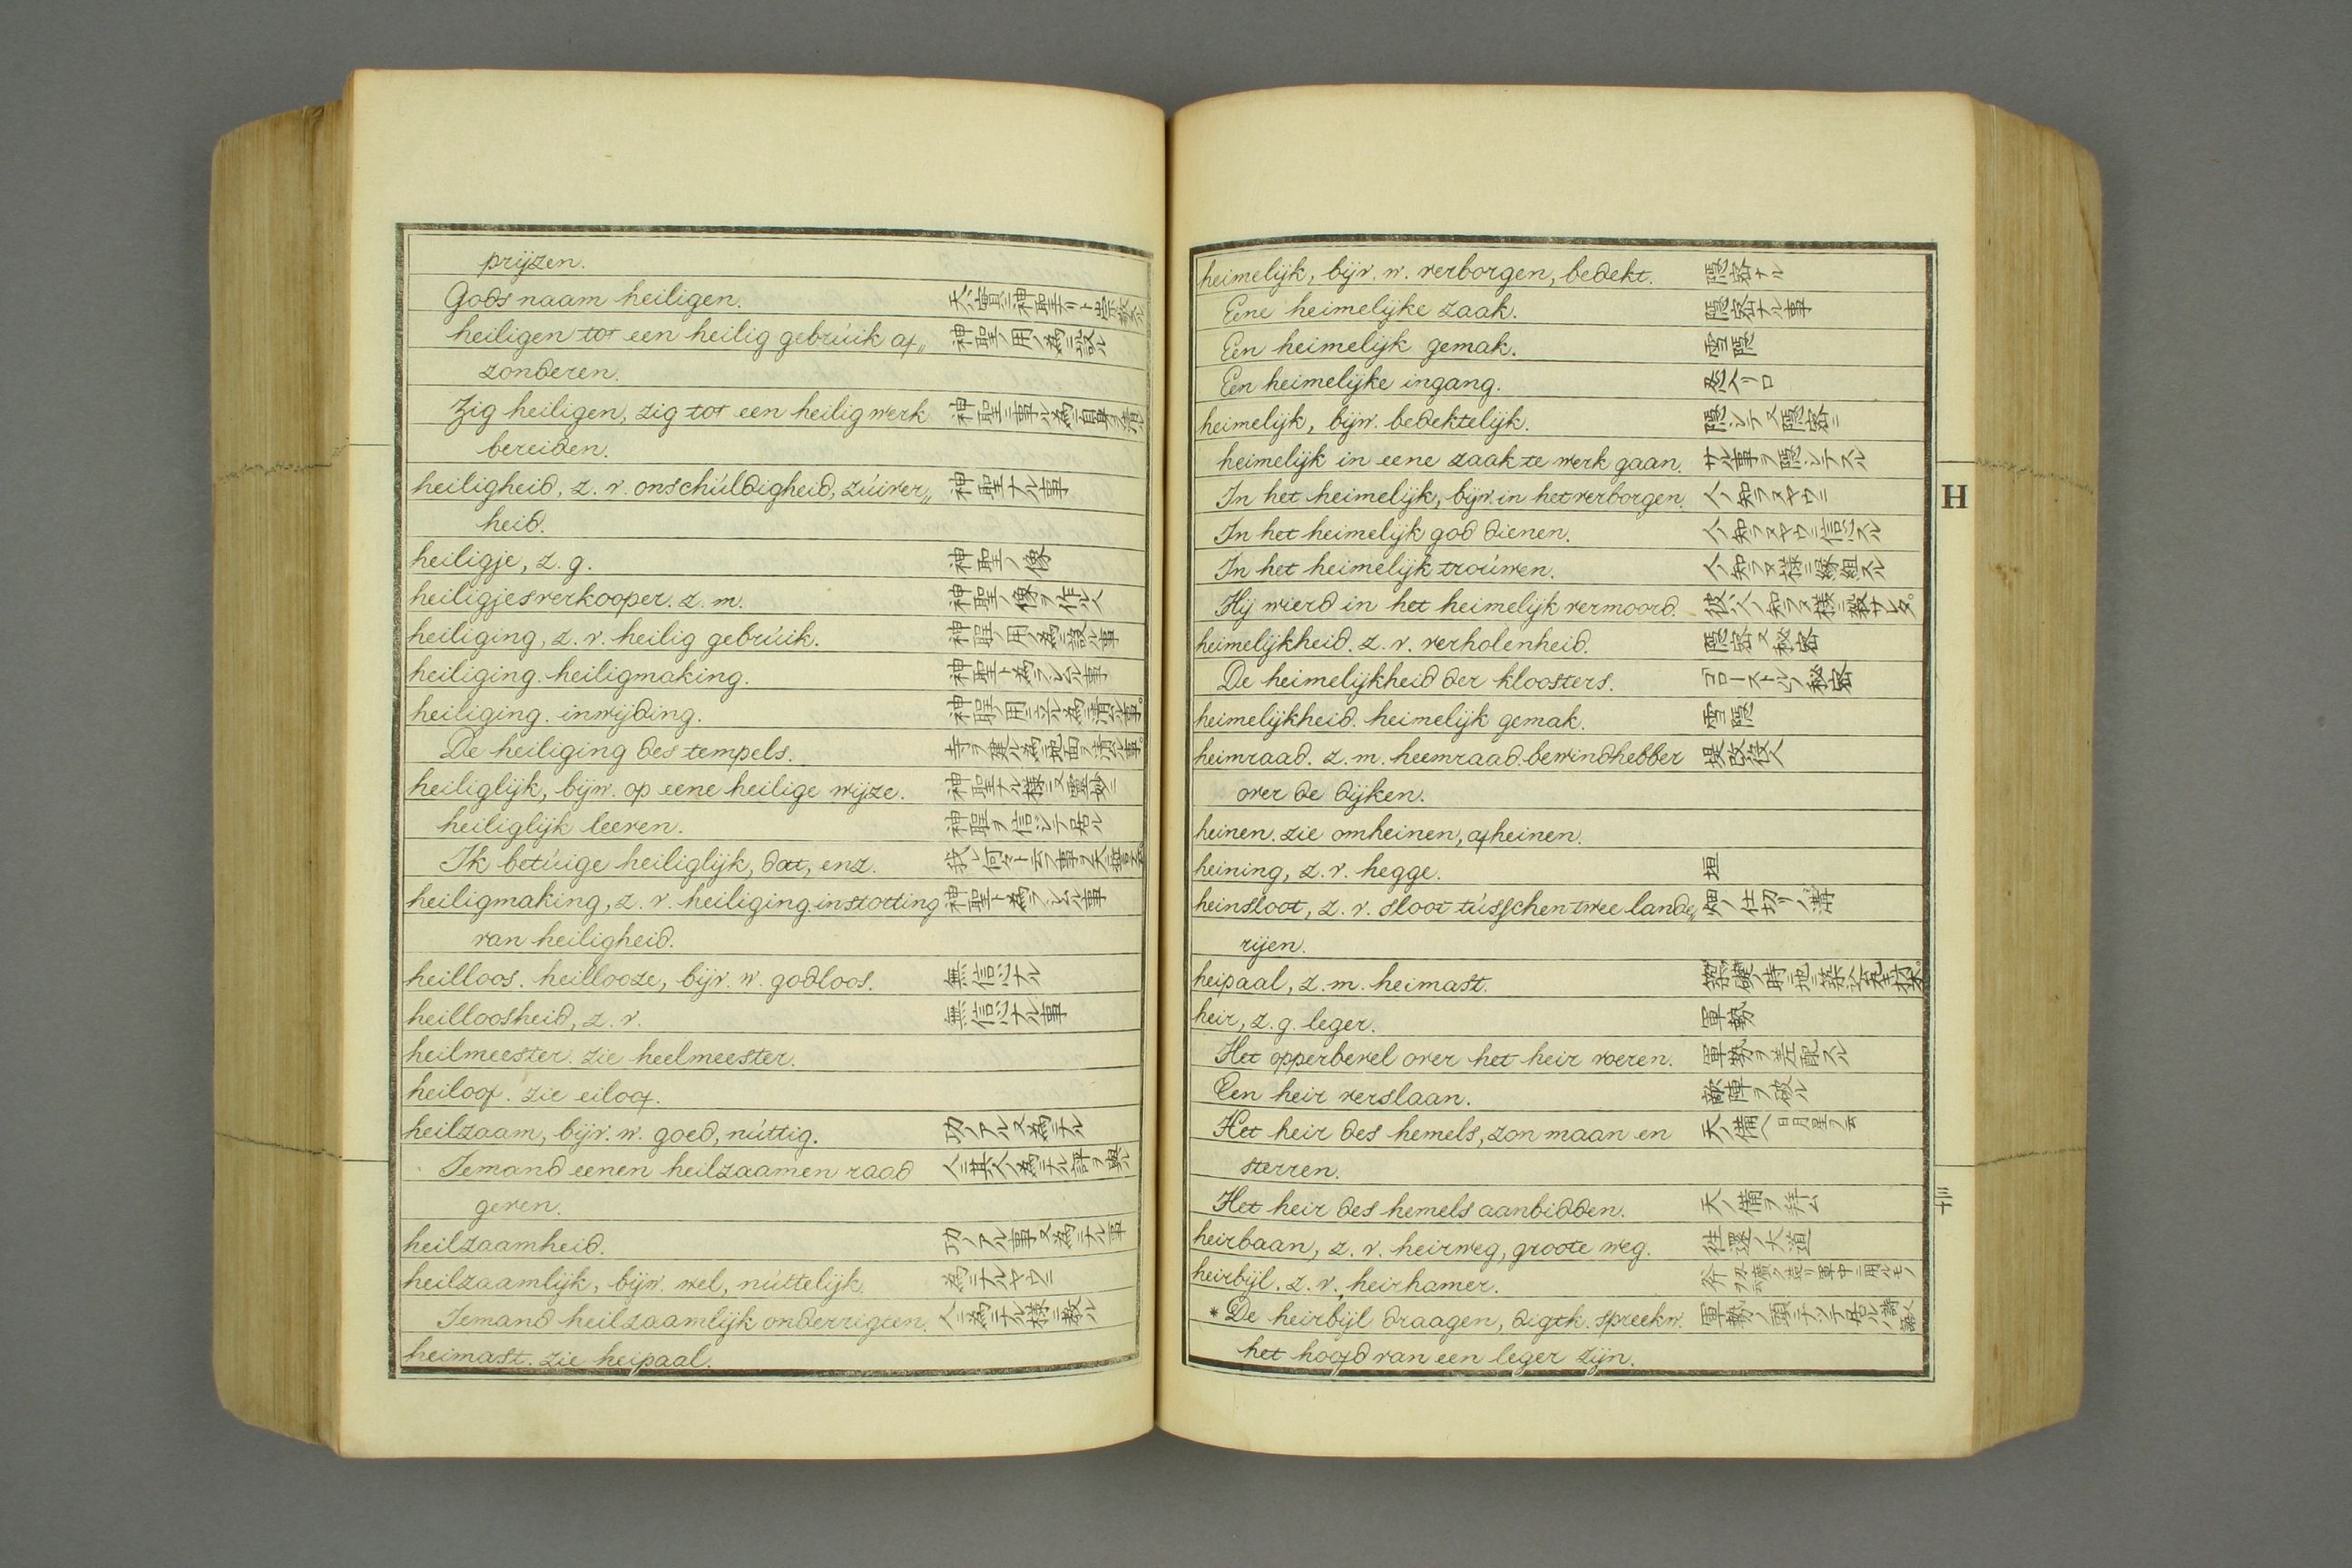 prijzen.
Gods naam heiligen.
heiligen tot een heilig gebrúik af„ 神聖ノ用ノ為ニ設ル
zonderen.
Zig heiligen, zig tot een heilig werk
bereiden.
heiligheid, z. v. onschúldigheid, zúiver„ 神聖ナル事
heid.
heiligje, z. g. 神聖ノ像
heiligjesverkooper. z. m. 神聖ノ像ヲ作ル人
heiliging, z. v. heilig gebrúik. 神聖ノ用ノ為ニ設ル事
heiliging. heiligmaking. 神聖ト為ラシムル事
heiliging. inwijding. 神聖ノ用ニ立ル為ニ清ル事。
De heiliging des tempels. 寺ヲ建ル為ニ地面ヲ清ル事。
heiliglijk, bijw. op eene heilige wijze. 神聖ナル様ニ又霊妙ニ
heiliglijk leeren. 神聖ヲ信シテ居ル
Ik betúige heiliglijk, dat, enz.
heiligmaking, z. v. heiliging. instorting 神聖ト為ラシムル事
van heiligheid.
heilloos. heillooze, bijv. w. godloos. 無信心ナル
heilloosheid, z. v. 無信心ナル事
heilmeester. zie heelmeester.
heiloof. zie eiloof.
heilzaam, bijv. w. goed, núttig. 功ノアル又為ニナル
Iemand eenen heilzaamen raad 人ニ其人ノ為ニナル評ヲ與
geven.
heilzaamheid. 功ノアル事又為ニナル事
heilzaamlijk, bijw. wel, núttelijk. 為ニナルヤウニ
Iemand heilzaamlijk onderrigten. 人ニ為ニナル様ニ教ル
heimast. zie heipaal.
heimelijk, bijv. w. verborgen, bedekt. 隠密ナル
Eene heimelijke zaak. 隠密ナル事
Een heimelijk gemak. 雪隠
Een heimelijke ingang. 忍入リ口
heimelijk, bijw. bedektelijk. 隠シテ又隠密ニ
heimelijk in eene zaak te werk gaan. サル事ヲ隠シテスル
In het heimelijk, bijw. in het verborgen. 人ノ知ラヌヤウニ
In het heimelijk god dienen. 人ノ知ラヌヤウニ信心スル
In het heimelijk troúwen. 人ノ知ラヌ様ニ縁組スル
Hij wierd in het heimelijk vermoord. 彼ハ人ノ知ラヌ様ニ殺サレタ。
heimelijkheid. z. v. verholenheid. 隠密又秘密
De heimelijkheid der kloosters. 秘密
heimelijkheid. heimelijk gemak. 雪隠
heimraad. z. m. heemraad. bewindhebber 堤改役人
over de dijken.
heinen. zie omheinen, afheinen.
heining, z. v. hegge. 垣
heinsloot, z. v. sloot tússchen twee lande„ 畑ノ仕切リノ溝
rijen.
heipaal, z. m. heimast.
heir, z. g. leger. 軍勢
Het opperbevel over het heir voeren. 軍勢ヲ差配スル
Een heir verslaan. 敵陣ヲ破ル
Het heir des hemels, zon maan en 天ノ備ヘ日月星ヲ云
sterren.
Het heir des hemels aanbidden. 天ノ備ヲ拜ム
heirbaan, z. v. heirweg, groote weg. 往還ノ大道
heirbijl. z. v. heirhamer.
* De heirbijl draagen, digtk. spreekw.
het hoofd van een leger zijn.
H